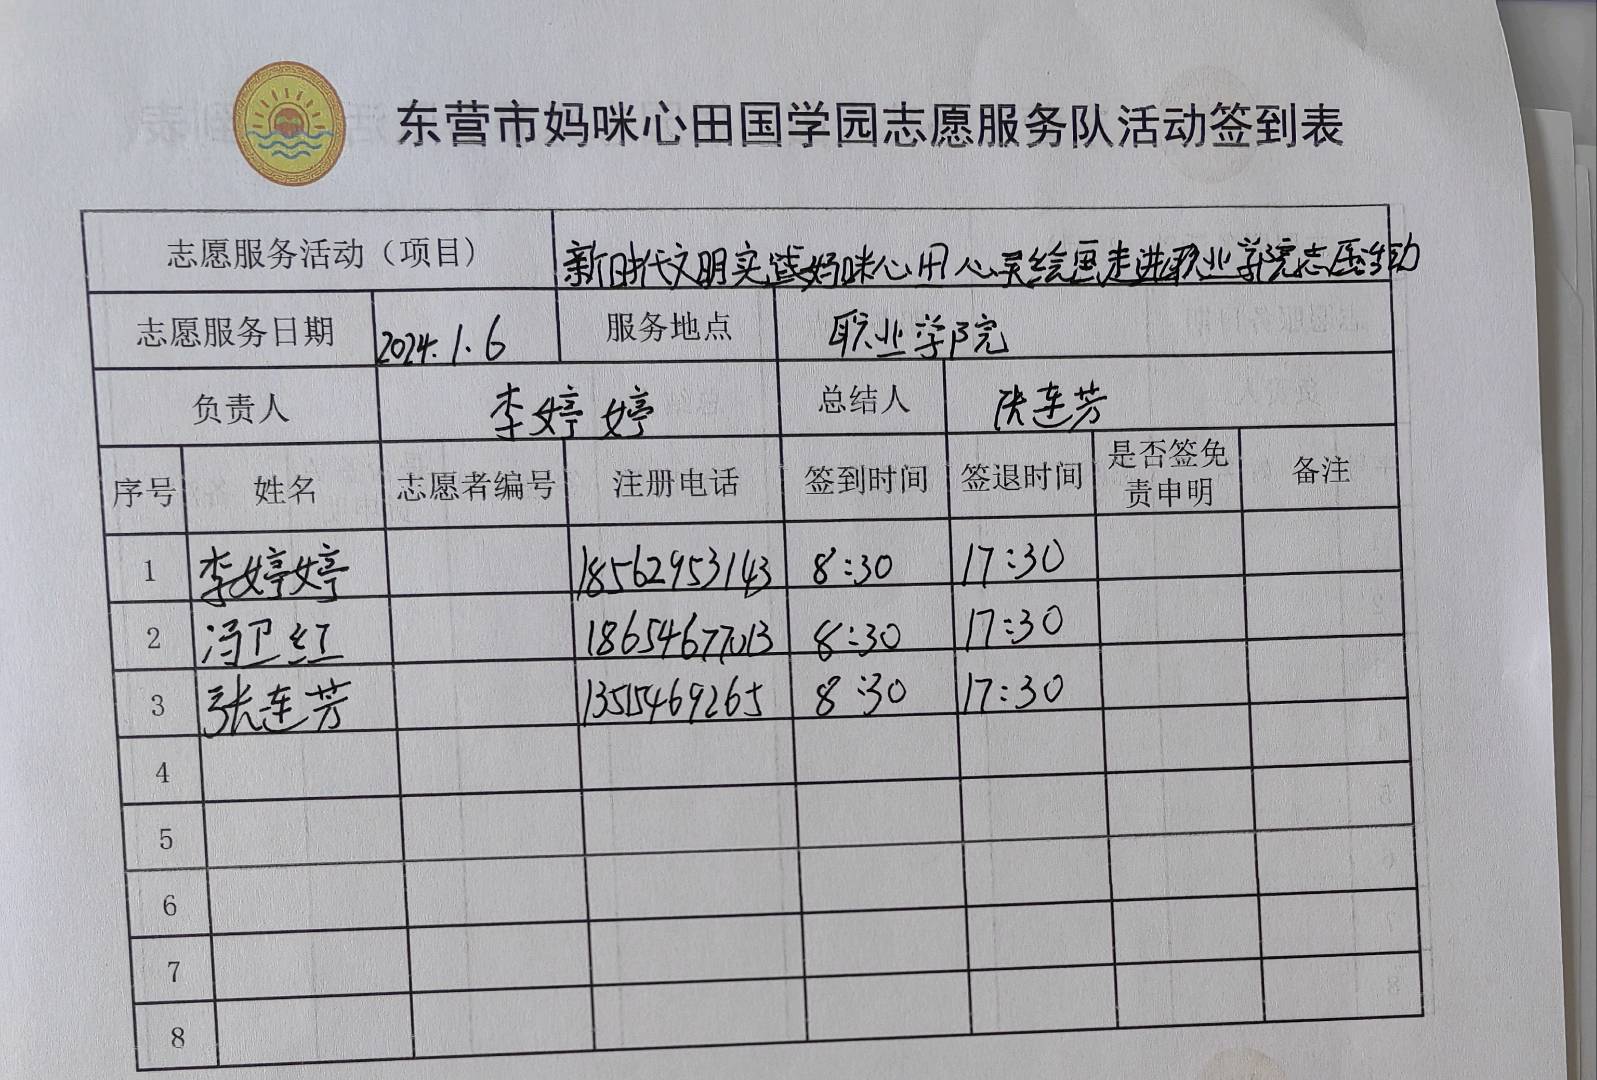 东营市妈咪心田国学园志愿服务队活动签到表
志愿服务活动（项目） 新时代文明实践妈咪心田心灵绘画走进职业学院志愿活动
志愿服务日期 2024.1.6 服务地点 职业学院
负责人 李婷婷 总结人 张连芳
序号 姓名 志愿者编号 注册电话 签到时间 签退时间 是否签免责申明 备注
1 李婷婷 18562953143 8:30 17:30
2 冯卫红 18654677013 8:30 17:30
3 张连芳 13515469265 8:30 17:30
4
5
6
7
8